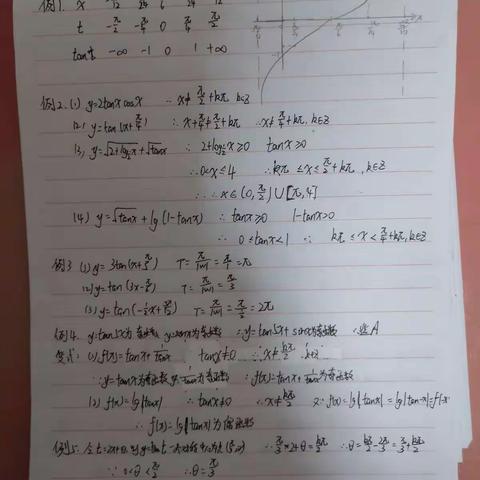 例1. x -π/12 π/24 π/6 7π/24 5π/12
t -π/2 -π/4 0 π/4 π/2
tant -∞ -1 0 1 +∞
例2. (1) y=2tanx cosx ∴ x≠π/2+kπ k∈Z
(2) y=tan(x+π/4) ∴ x+π/4≠π/2+kπ ∴x≠π/4+kπ, k∈Z
(3) y=√(2+log½x)+√tanx ∴ 2+log½x≥0 tanx≥0
∴0<x≤4 ∴ kπ≤x≤π/2+kπ, k∈Z
∴ x∈(0,π/2)∪[π,4]
(4) y=√tanx+lg(1-tanx) ∴ tanx≥0 1-tanx>0
∴ 0≤tanx<1 ∴ kπ≤x<π/4+kπ, k∈Z
例3 (1) y=3tan(x+π/5) T=π/|w|=π/1=π
(2) y=tan(3x-π/) T=π/|w|=π/3
(3) y=tan(-½x+) T=π/|w|=π/½=2π
例4. y=tan5x为奇函数 y=sinx为奇函数 ∴y=tan5x+sinx为奇函数 ∴选A
变式: (1) f(x)=tanx+1/tanx tanx≠0 ∴x≠kπ/2, k∈Z
∵y=tanx为奇函数 y=1/tanx为奇函数 ∴f(x)=tanx+1/tanx为奇函数
(2) f(x)=lg|tanx| ∴ tanx≠0 ∴x≠kπ/2 又∵f(x)=lg|tanx|=lg|tan-x|=f(-x)
∴ f(x)=lg|tanx|为偶函数
例5. 令t=2x+θ ∴π/3×2+θ=kπ/2 ∴θ=kπ/2-2π/3
∵ 0<θ<π/2 ∴θ=π/3